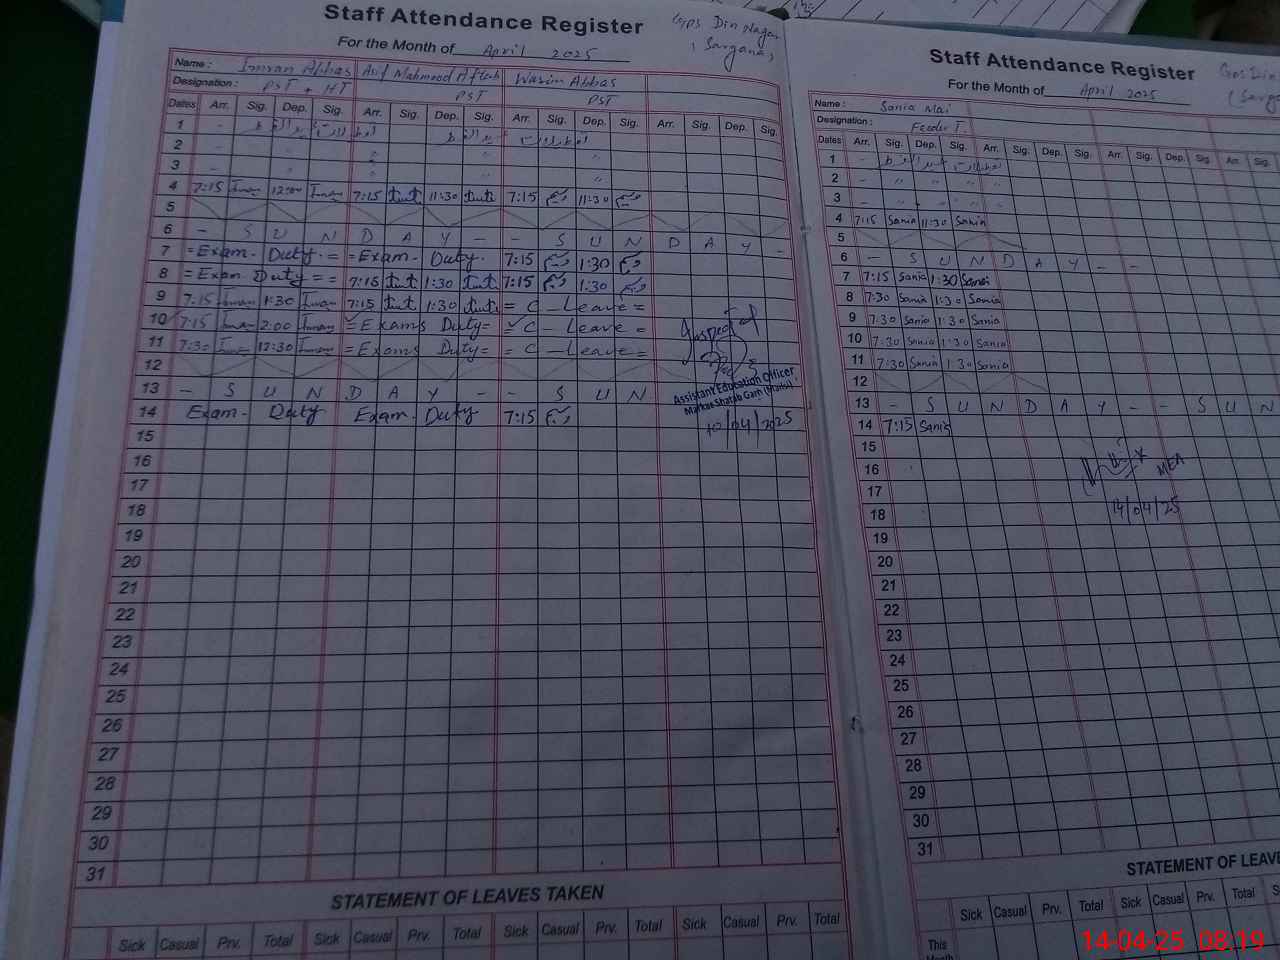 Staff Attendance Register
Gps Din Nagar
For the Month of April 2025
Name : Imran Abbas Arif Mahmood Aftab Wasim Abbas
Designation : PST + HT PST PST
Dates Arr. Sig. Dep. Sig. Arr. Sig. Dep. Sig. Arr. Sig. Dep. Sig. Arr. Sig. Dep. Sig.
1
2
3
4 7:15 Imran 12:00 Imran 7:15 11:30 7:15 11:30
5
6 - S U N D A Y - - S U N D A Y -
7 = Exam - Duty. = = Exam - Duty. 7:15 1:30
8 = Exam Duty = = 7:15 1:30 7:15 1:30
9 7:15 Imran 1:30 Imran 7:15 1:30 = C - Leave =
10 7:15 Imran 2:00 Imran = Exams Duty = = C - Leave =
11 7:30 Imran 12:30 Imran = Exams Duty = = C - Leave =
12
13 - S U N D A Y - - S U N
14 Exam - Duty Exam - Duty 7:15
15
16
17
18
19
20
21
22
23
24
25
26
27
28
29
30
31
Inspected
Assistant Education Officer
10/04/2025
STATEMENT OF LEAVES TAKEN
Sick Casual Prv. Total Sick Casual Prv. Total Sick Casual Prv. Total Sick Casual Prv. Total
Staff Attendance Register
Gps Din
For the Month of April 2025
Name : Sania Mai
Designation : Feeder T.
Dates Arr. Sig. Dep. Sig. Arr. Sig. Dep. Sig. Arr. Sig. Dep. Sig. Arr. Sig.
1
2
3
4 7:15 Sania 11:30 Sania
5
6 - S U N D A Y - -
7 7:15 Sania 1:30 Sania
8 7:30 Sania 1:30 Sania
9 7:30 Sania 1:30 Sania
10 7:30 Sania 1:30 Sania
11 7:30 Sania 1:30 Sania
12
13 - S U N D A Y - - S U N
14 7:15 Sania
15
16
17
18
19
20
21
22
23
24
25
26
27
28
29
30
31
MEA
14/04/25
STATEMENT OF LEAVE
Sick Casual Prv. Total Sick Casual Prv. Total
This
Month
14-04-25 08:19